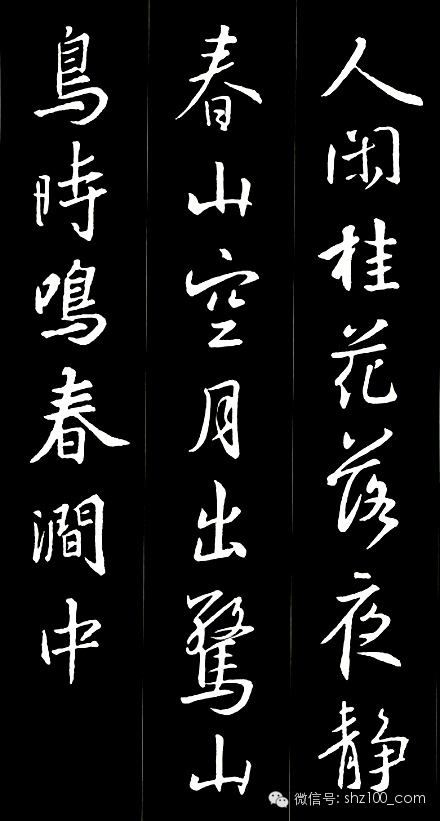 人闲桂花落夜静
春山空月出驚山
鳥時鳴春澗中
微信号: shz100_com